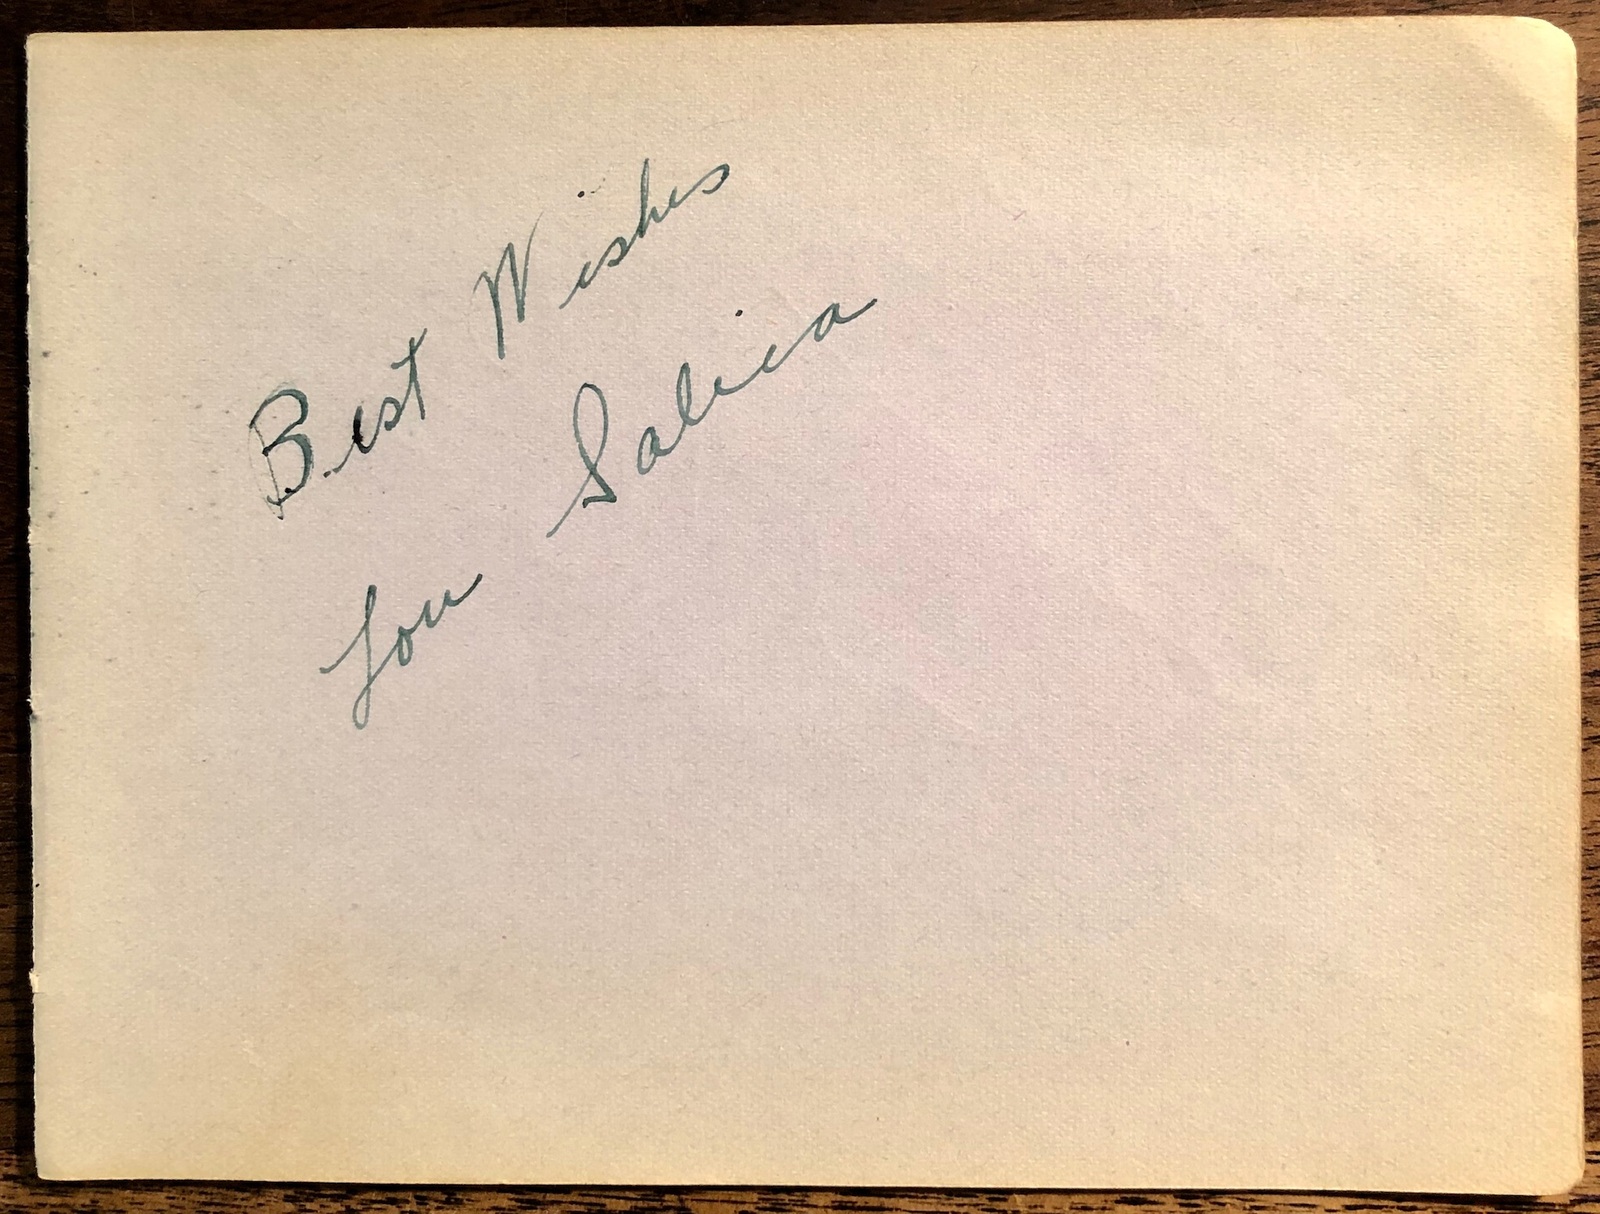 Best Wishes
Lou Salica